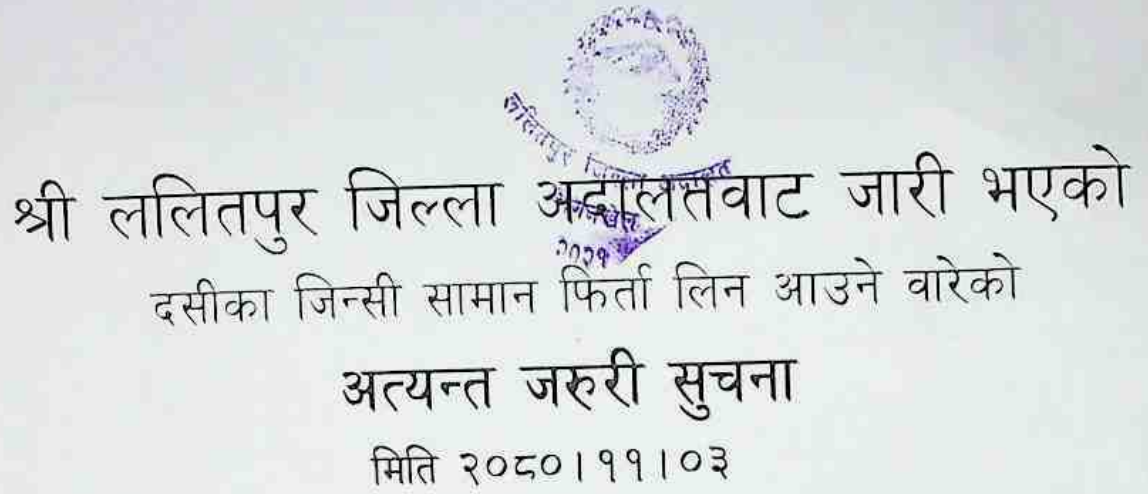 ललितपुर
२०२१
श्री ललितपुर जिल्ला अदालतवाट जारी भएको
दसीका जिन्सी सामान फिर्ता लिन आउने वारेको
अत्यन्त जरुरी सुचना
मिति २०८०।११।०३